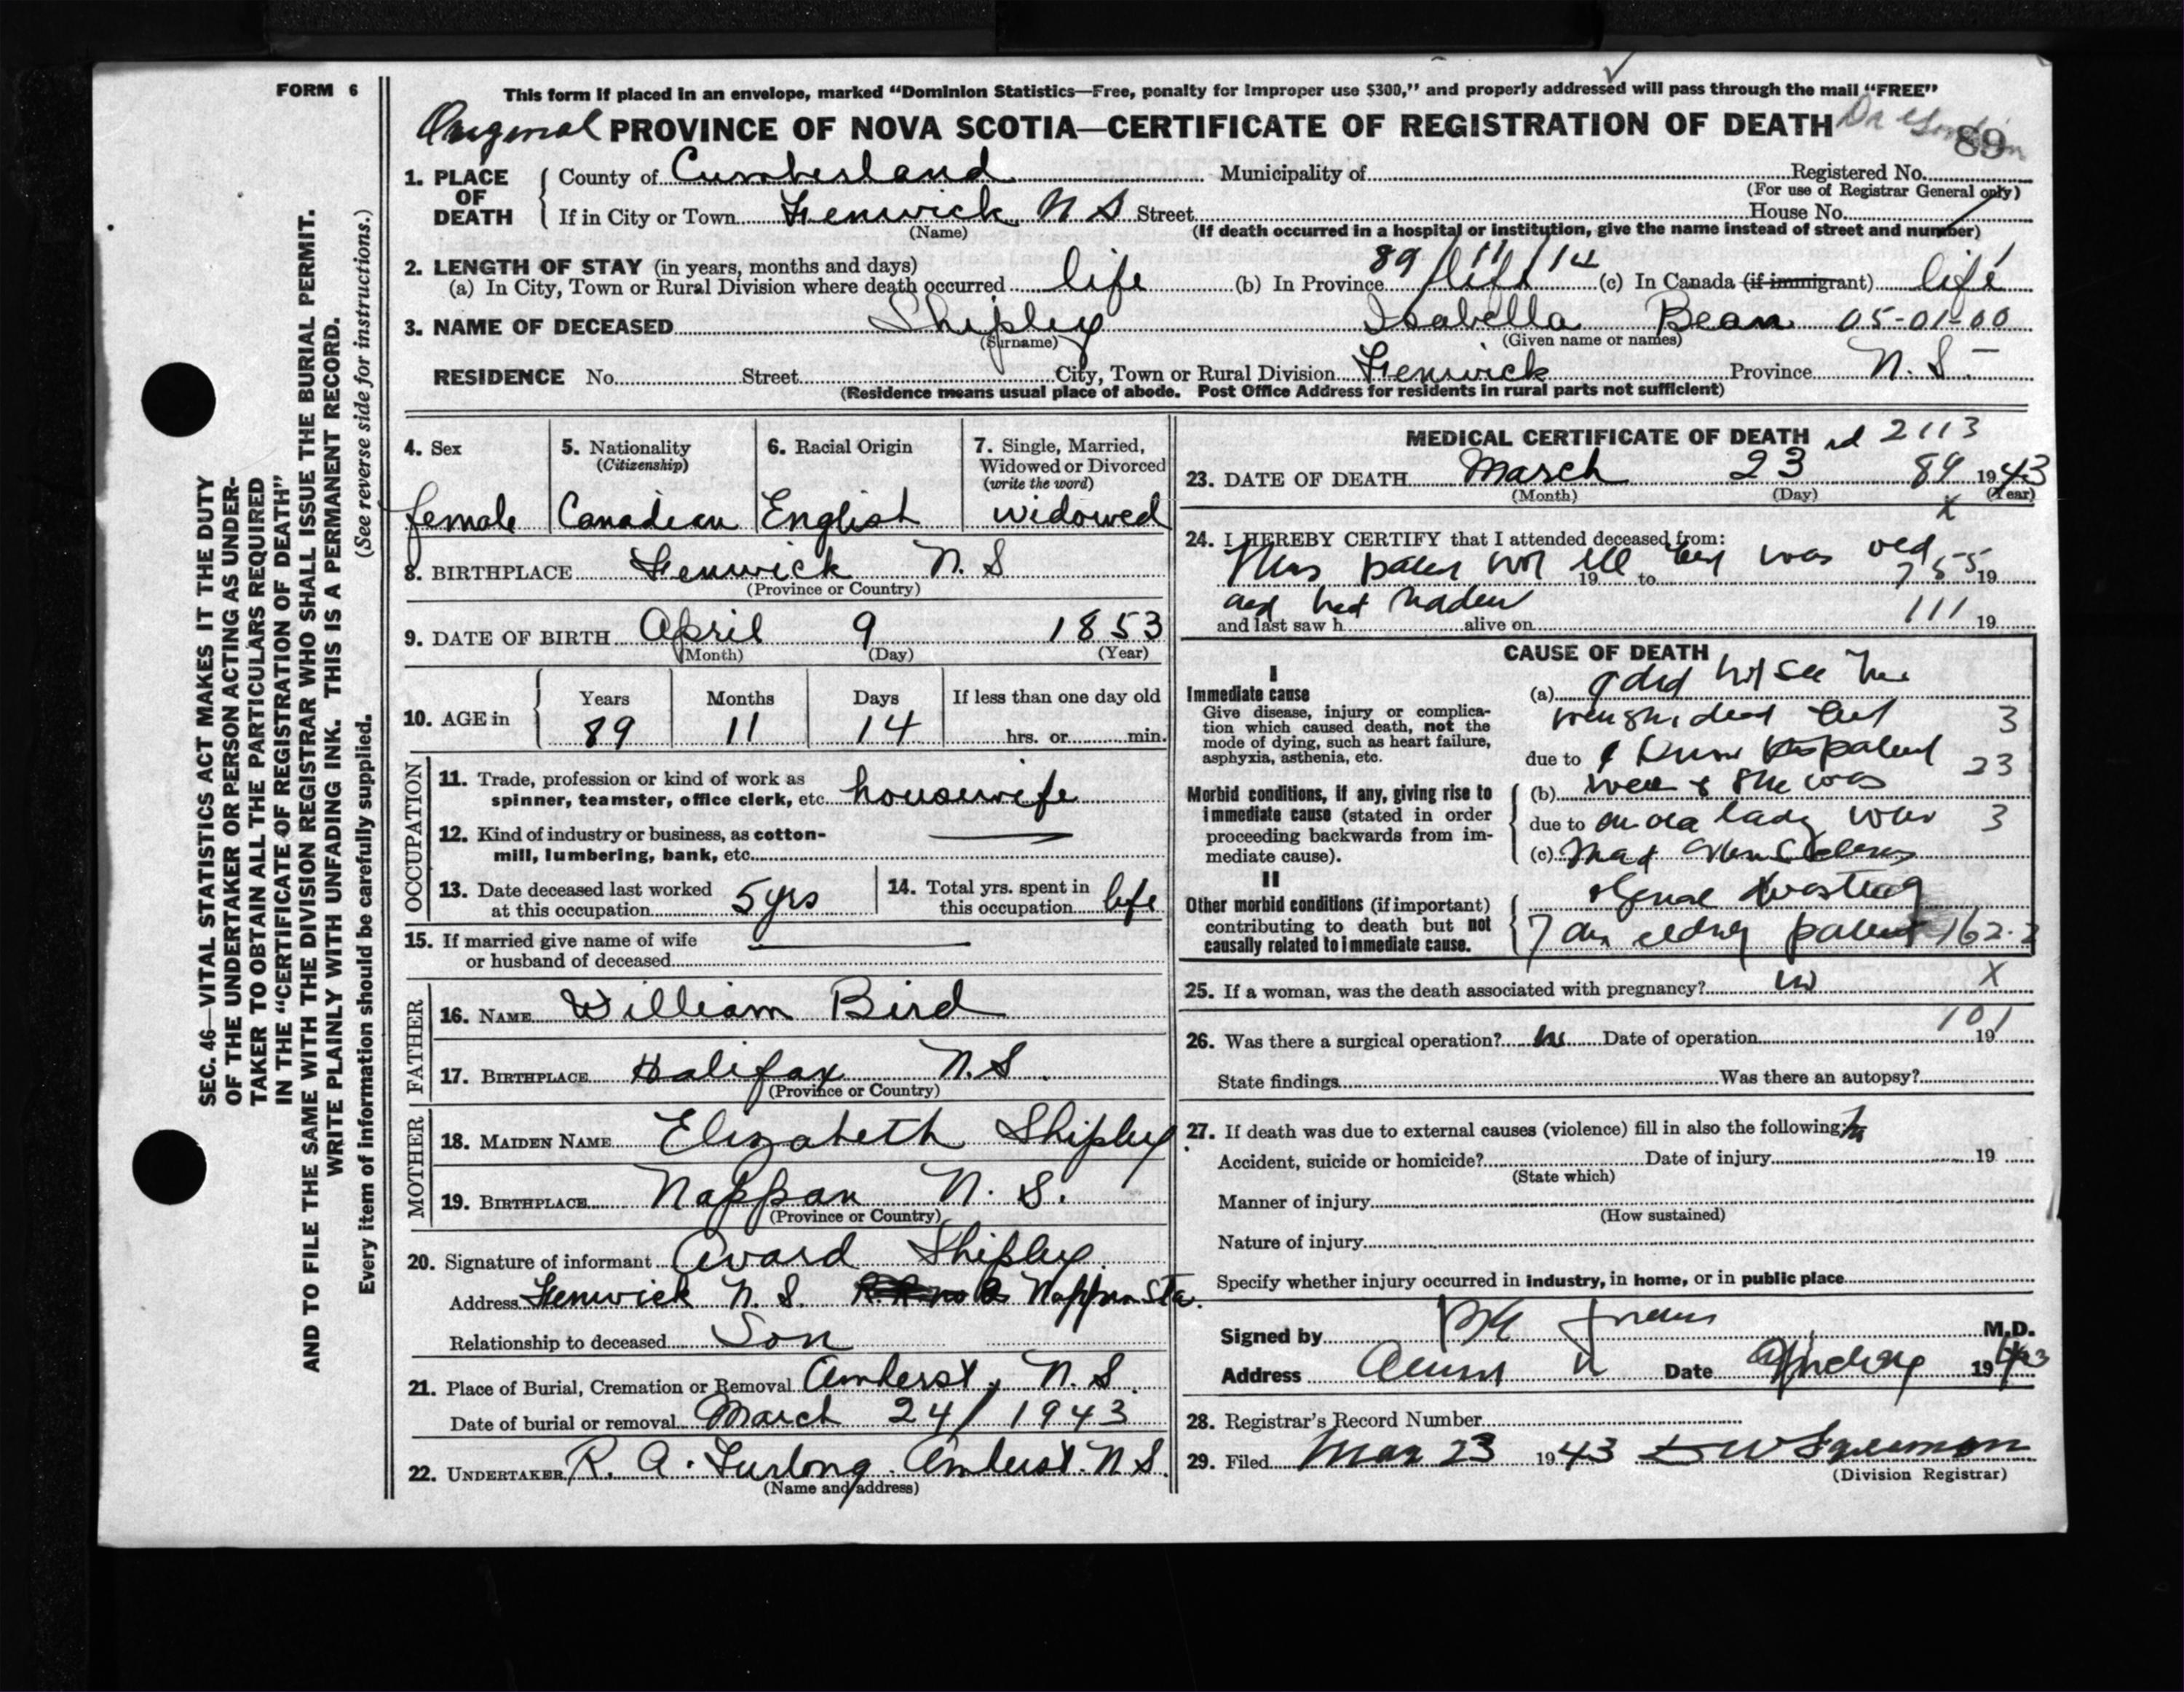 FORM 6
This form if placed in an envelope, marked "Dominion Statistics—Free, penalty for improper use $300," and properly addressed will pass through the mail "FREE"
Original PROVINCE OF NOVA SCOTIA—CERTIFICATE OF REGISTRATION OF DEATH
89
1. PLACE OF DEATH
County of Cumberland Municipality of Registered No.
(For use of Registrar General only)
If in City or Town Fenwick N S Street House No.
(Name) (If death occurred in a hospital or institution, give the name instead of street and number)
2. LENGTH OF STAY (in years, months and days) 89 / 11 / 14
(a) In City, Town or Rural Division where death occurred life (b) In Province life (c) In Canada (if immigrant) life
3. NAME OF DECEASED Shipley Isabella Bean 05-01-00
(Surname) (Given name or names)
RESIDENCE No. Street City, Town or Rural Division Fenwick Province N. S.
(Residence means usual place of abode. Post Office Address for residents in rural parts not sufficient)
4. Sex
female
5. Nationality
(Citizenship)
Canadian
6. Racial Origin
English
7. Single, Married,
Widowed or Divorced
(write the word)
widowed
8. BIRTHPLACE Fenwick N. S
(Province or Country)
9. DATE OF BIRTH April 9 1853
(Month) (Day) (Year)
10. AGE in
Years Months Days If less than one day old
89 11 14 hrs. or min.
OCCUPATION
11. Trade, profession or kind of work as
spinner, teamster, office clerk, etc. housewife
12. Kind of industry or business, as cotton-
mill, lumbering, bank, etc.
13. Date deceased last worked
at this occupation 5 yrs
14. Total yrs. spent in
this occupation life
15. If married give name of wife
or husband of deceased
FATHER
16. NAME William Bird
17. BIRTHPLACE Halifax N.S.
(Province or Country)
MOTHER
18. MAIDEN NAME Elizabeth Shipley
19. BIRTHPLACE Nappan N. S.
(Province or Country)
20. Signature of informant Avard Shipley
Address Fenwick N. S. Nappan Sta.
Relationship to deceased Son
21. Place of Burial, Cremation or Removal Amherst, N. S.
Date of burial or removal March 24/ 1943
22. UNDERTAKER R. A. Furlong Amherst N S.
(Name and address)
MEDICAL CERTIFICATE OF DEATH 2113
23. DATE OF DEATH March 23 89 1943
(Month) (Day) (Year)
X
24. I HEREBY CERTIFY that I attended deceased from:
was old
19 to 755 19
and last saw h alive on 111 19
CAUSE OF DEATH
I
Immediate cause
Give disease, injury or complica-
tion which caused death, not the
mode of dying, such as heart failure,
asphyxia, asthenia, etc.
(a) I did not see
3
due to I know
23
Morbid conditions, if any, giving rise to
immediate cause (stated in order
proceeding backwards from im-
mediate cause).
(b) well & she was
due to an old lady 3
(c)
II
Other morbid conditions (if important)
contributing to death but not
causally related to immediate cause.
162.2
25. If a woman, was the death associated with pregnancy? no X
101
26. Was there a surgical operation? no Date of operation 19
State findings Was there an autopsy?
27. If death was due to external causes (violence) fill in also the following:
Accident, suicide or homicide? Date of injury 19
(State which)
Manner of injury
(How sustained)
Nature of injury
Specify whether injury occurred in industry, in home, or in public place
Signed by M.D.
Address Date 1943
28. Registrar's Record Number
29. Filed Mar 23 1943
(Division Registrar)
SEC. 46—VITAL STATISTICS ACT MAKES IT THE DUTY
OF THE UNDERTAKER OR PERSON ACTING AS UNDER-
TAKER TO OBTAIN ALL THE PARTICULARS REQUIRED
IN THE "CERTIFICATE OF REGISTRATION OF DEATH"
AND TO FILE THE SAME WITH THE DIVISION REGISTRAR WHO SHALL ISSUE THE BURIAL PERMIT.
WRITE PLAINLY WITH UNFADING INK. THIS IS A PERMANENT RECORD.
Every item of information should be carefully supplied. (See reverse side for instructions.)